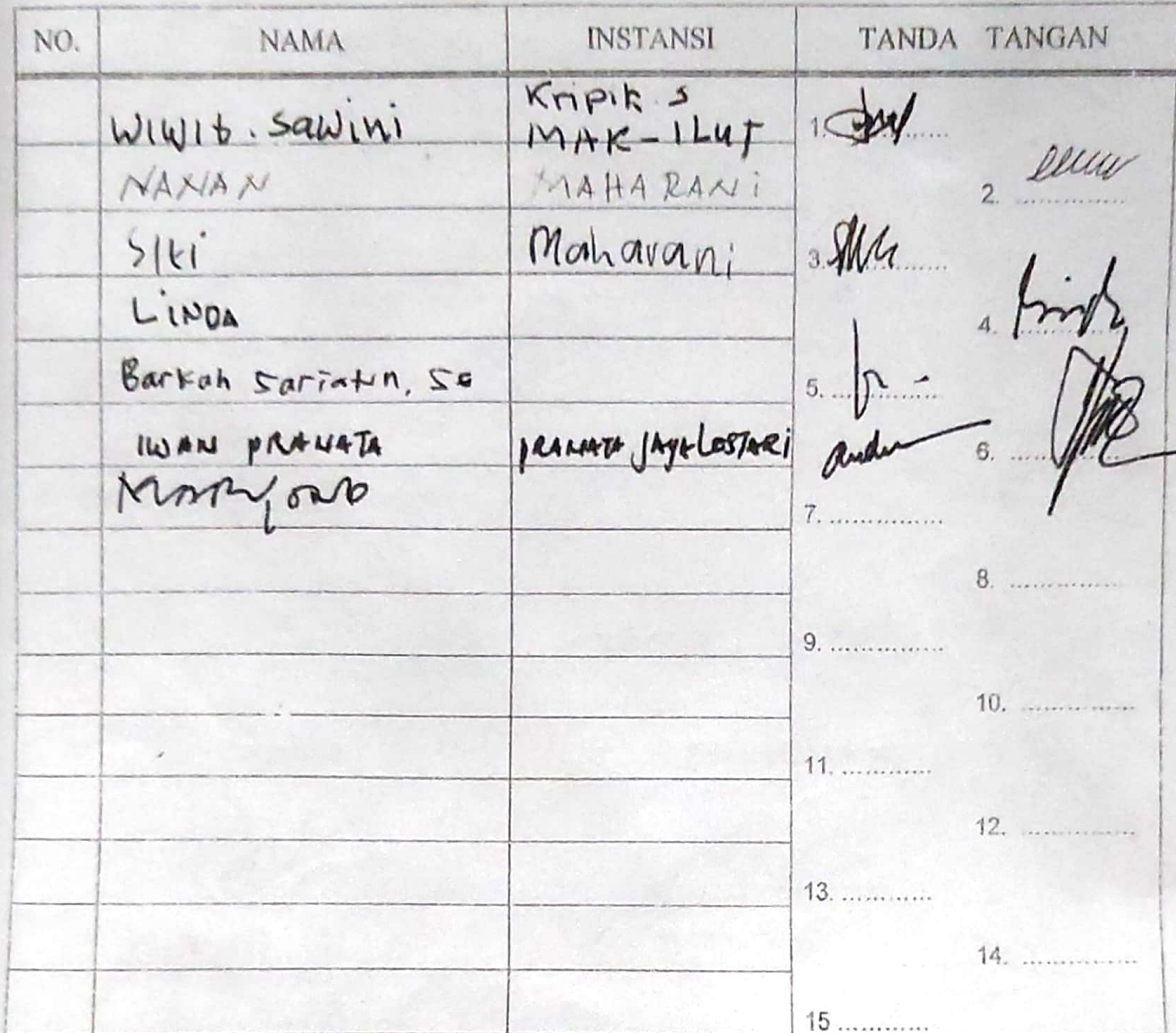 NO. NAMA INSTANSI TANDA TANGAN
Kripik s
Wiwit. Sawini MAK-ILUT 1.
NANAN MAHARANI 2.
Siti Maharani 3.
LINDA 4.
Barkah Sariatun, SE 5.
IWAN PRANATA PRANATA JAYA LESTARI 6.
Maryono 7.
8.
9.
10.
11.
12.
13.
14.
15